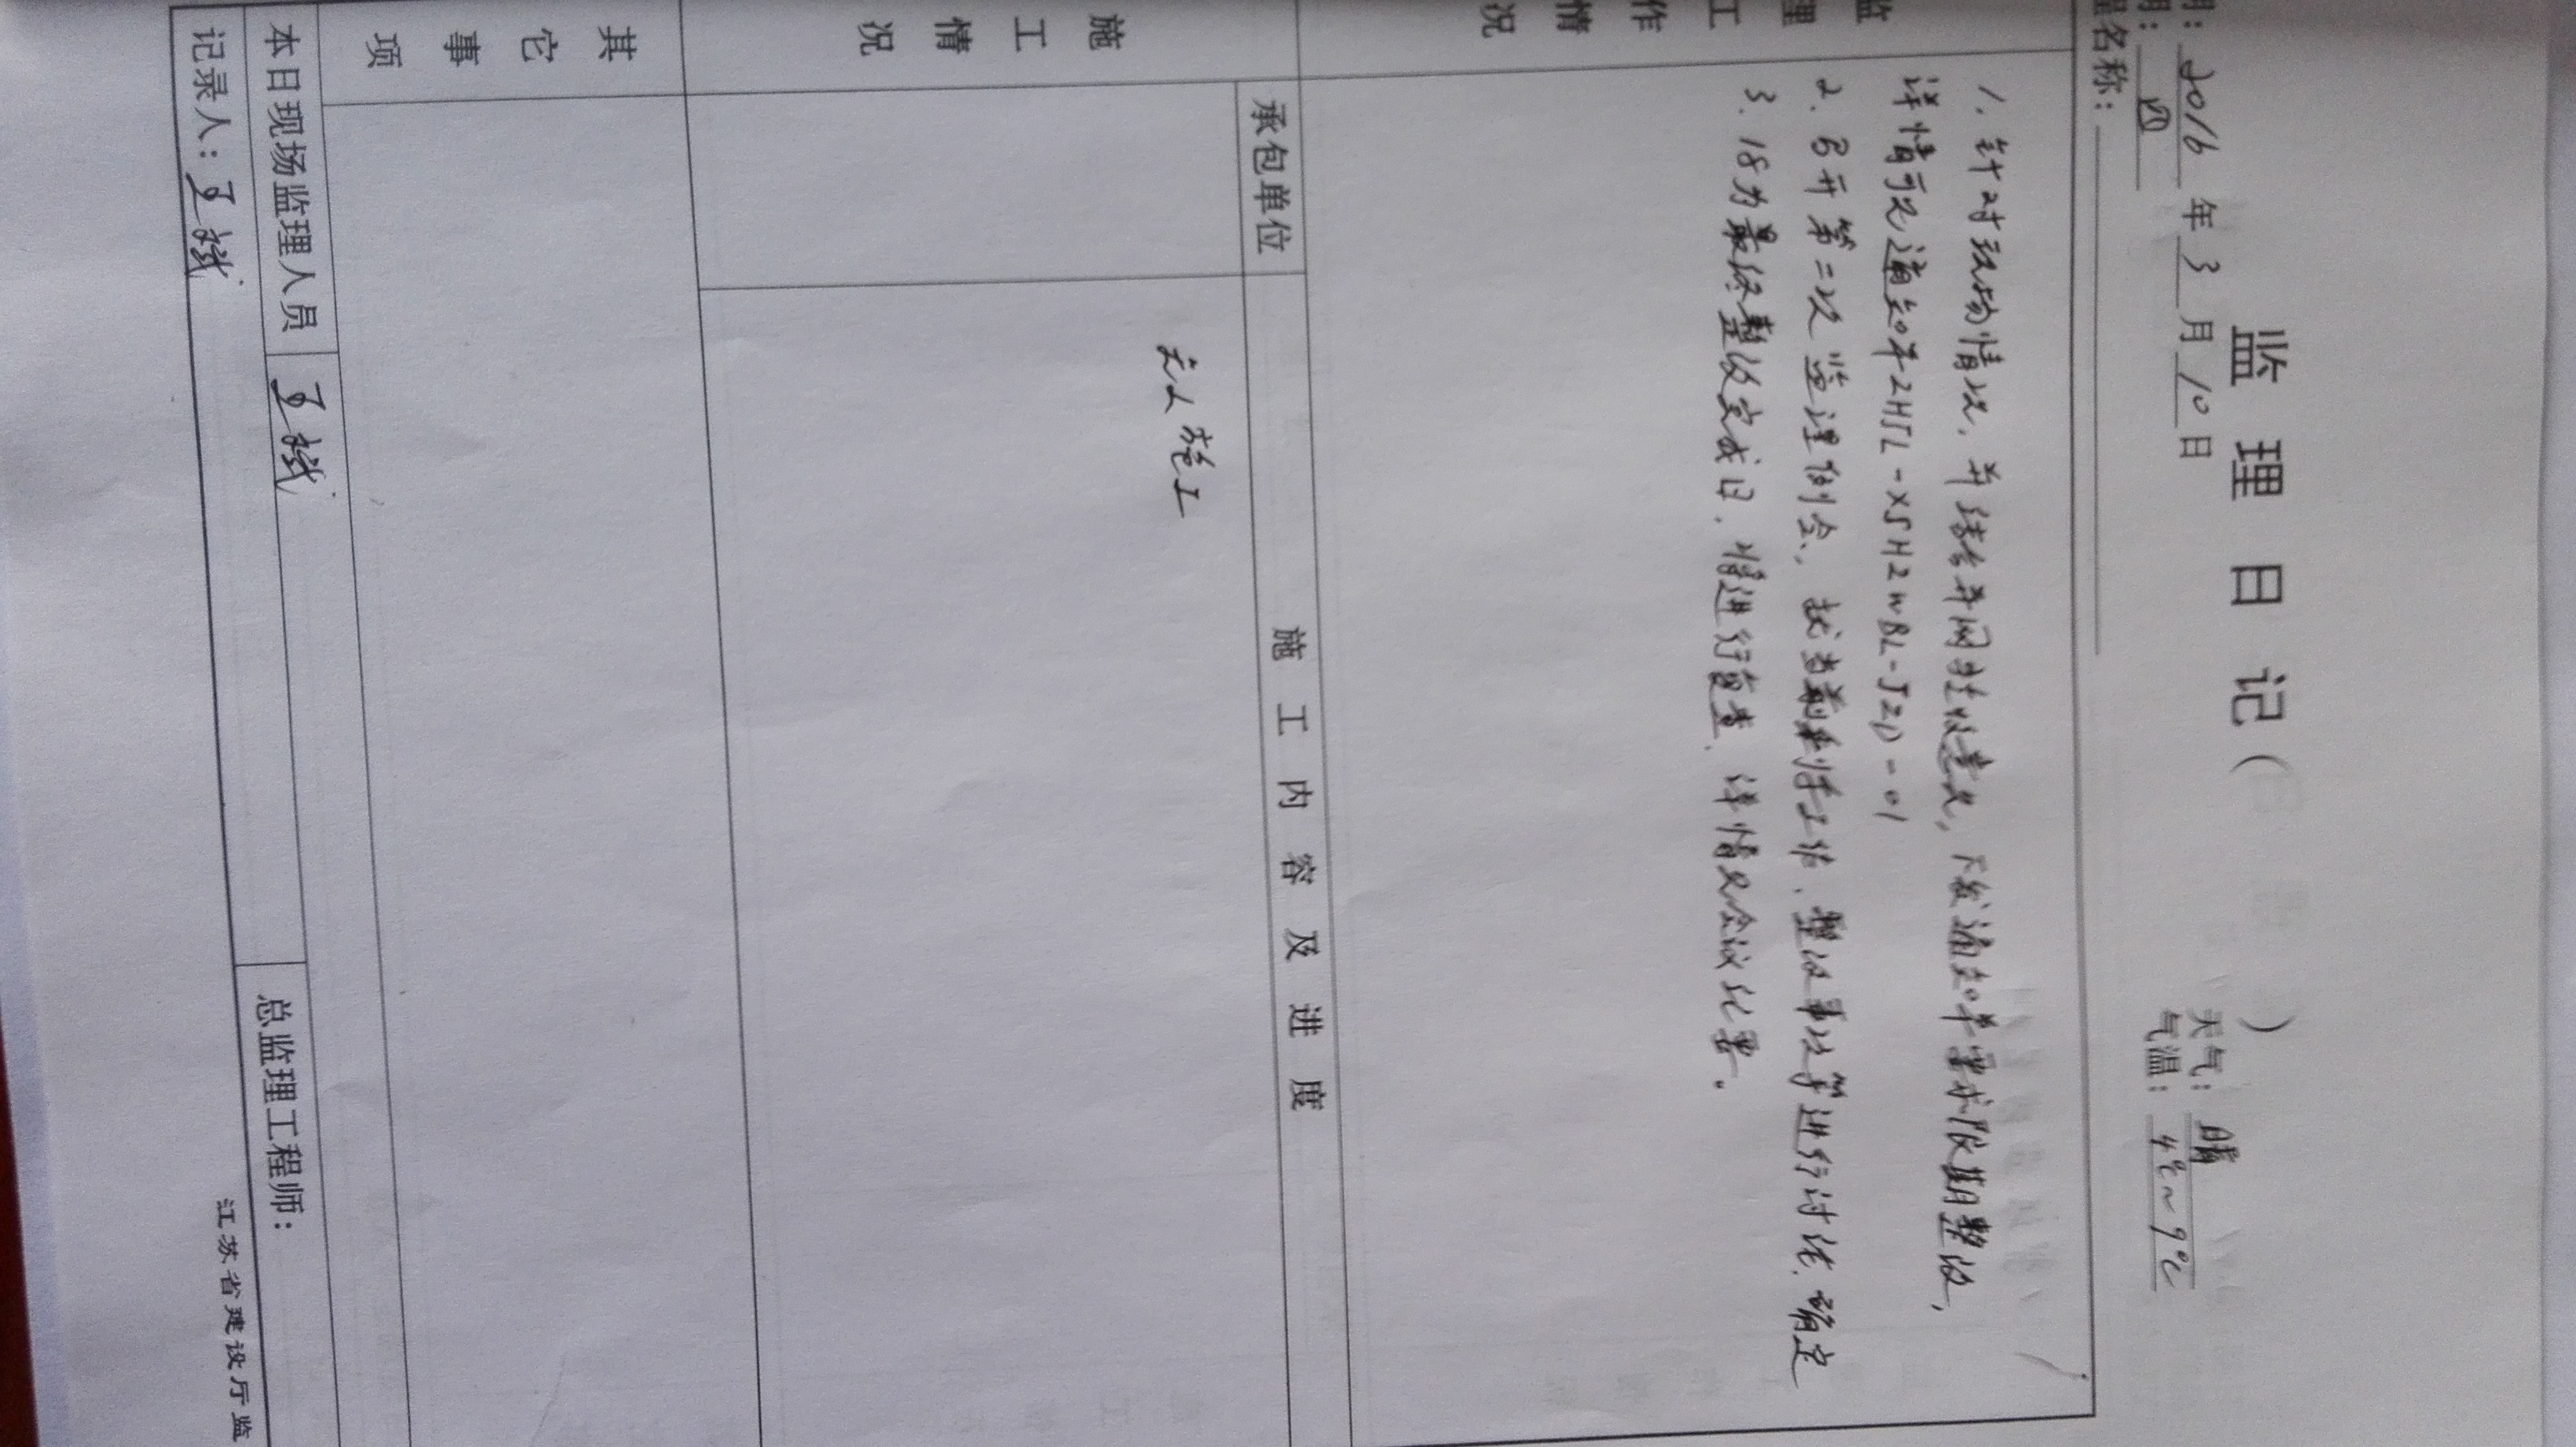 监 理 日 记 （ ）
期： 2016 年 3 月 10 日 天气： 晴
期： 四 气温： 4℃~9℃
程名称：
监理工作情况
1. 针对现场情况，并结合并网验收意见，下发通知单要求限期整改，
详情可见通知单ZHJL-XSHZWBL-JZD-01
2. 召开第二次监理例会，就当前剩余工作、整改事项等进行讨论，确定
3. 18为最终整改完成日，将进行复查，详情见会议纪要。
施工情况
承包单位 施 工 内 容 及 进 度
无人施工
其它事项
本日现场监理人员 总监理工程师：
记录人：
江苏省建设厅监